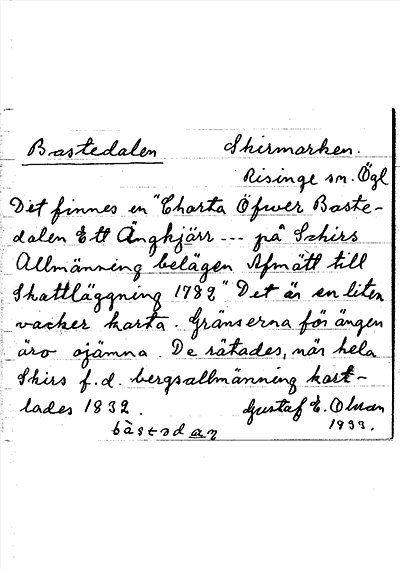 Bastedalen Skirmarken.
Risinge sn. Ögl
Det finnes en "Charta Öfwer Baste-
dalen Ett Ängkjärr --- på Schirs
Allmänning belägen Afmätt till
Skattläggning 1782" Det är en liten
vacker karta. Gränserna för ängen
äro ojämna. De rätades, när hela
Skirs f.d. bergsallmänning kart-
lades 1832. Gustaf E.
1933.